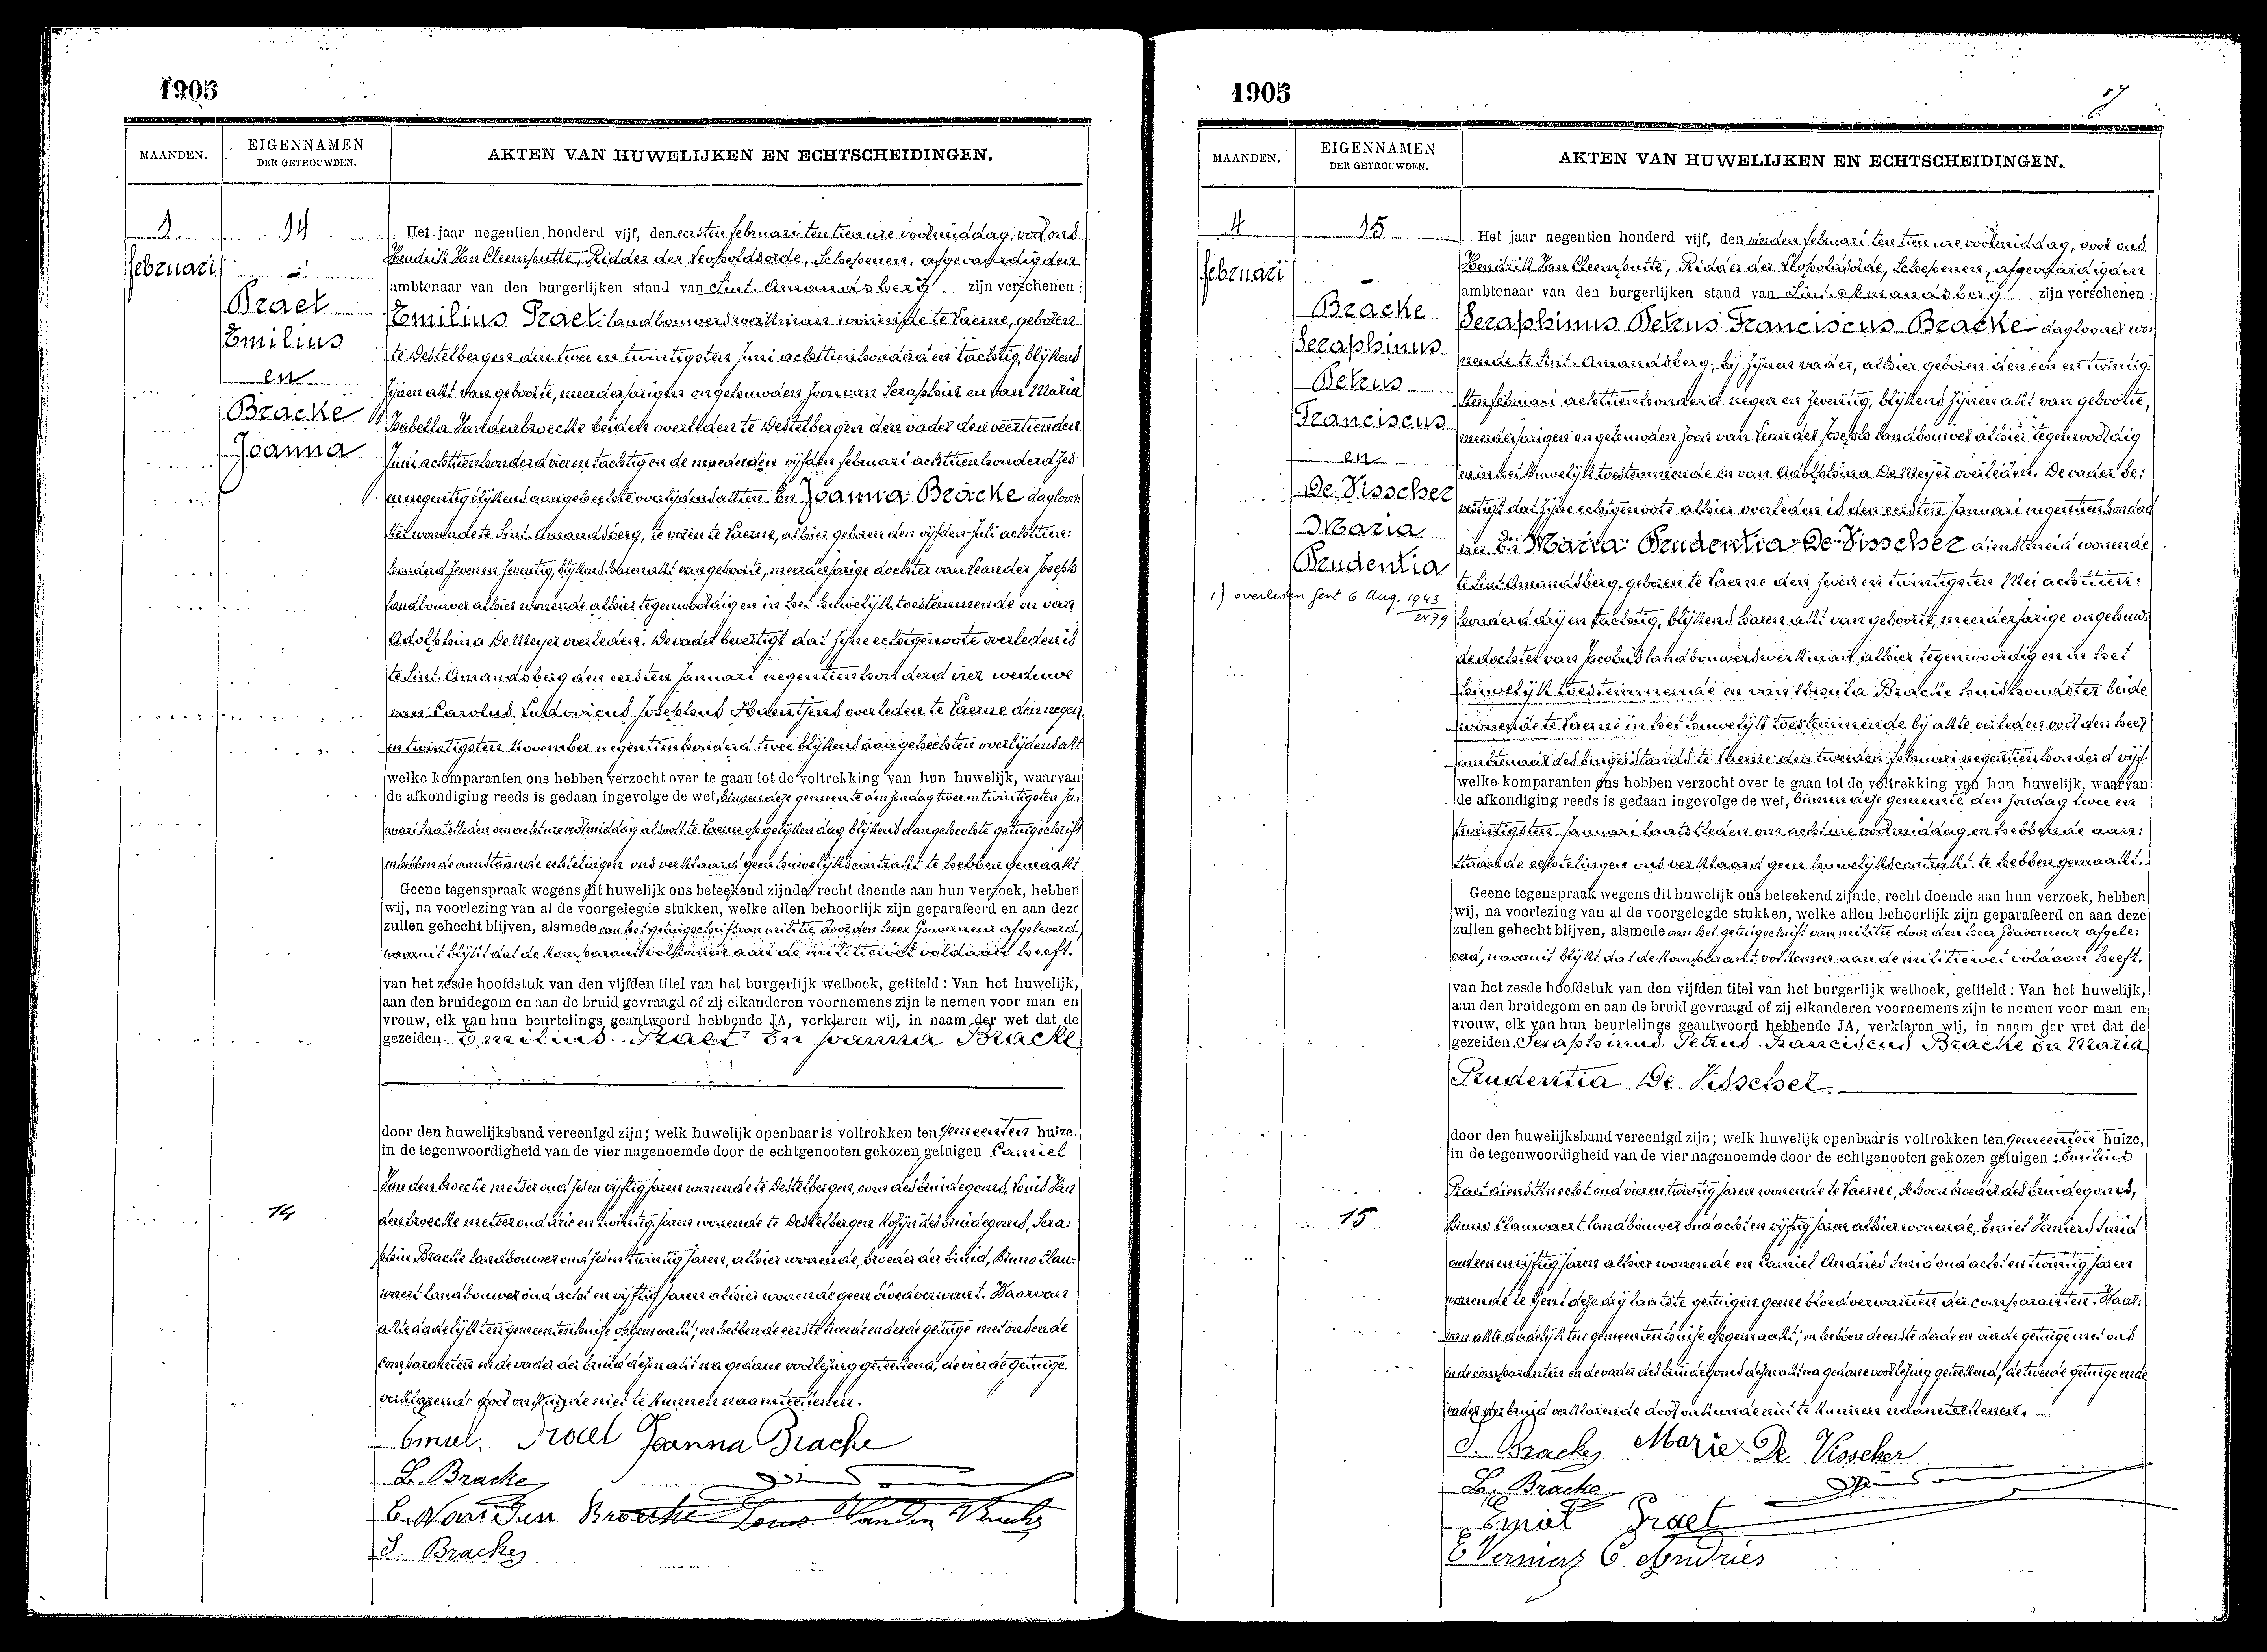 1905
MAANDEN.
EIGENNAMEN
DER GETROUWDEN.
AKTEN VAN HUWELIJKEN EN ECHTSCHEIDINGEN.
1
februari
14
Praet
Emilius
en
Bracke
Joanna
14
Het jaar negentien honderd vijf, den eersten februari ten tien ure voormiddag, voor ons
Hendrik Van Cleemputte, Ridder der Leopoldsorde, Schepenen, afgevaardigden
ambtenaar van den burgerlijken stand van Sint-Amandsberg zijn verschenen:
Emilius Praet landbouwerswerkman wonende te Laerne, geboren
te Destelbergen den twee en twintigsten Juni achttienhonderd en tachtig, blijkens
zijnen akt van geboorte, meerderjarigen ongehuwden zoon van Seraphin en van Maria
Isabella Vandenbroecke beiden overleden te Destelbergen den vader den veertienden
Juni achttienhonderd vier en tachtig en de moeder den vijfden februari achttienhonderd zes
en negentig blijkens aangehechte overlijdensakten. En Joanna Bracke dagloon:
ster wonende te Sint-Amandsberg, te voren te Laerne, alhier geboren den vijfden Juli achttien:
honderd zeven en zeventig, blijkens haren akt van geboorte, meerderjarige dochter van Leander Joseph
landbouwer alhier wonende alhier tegenwoordig en in het huwelijk toestemmende en van
Adolphina De Meyer overleden. De vader bevestigt dat zijne echtgenoote overleden is
te Sint-Amandsberg den eersten Januari negentienhonderd vier weduwe
van Carolus Ludovicus Josephus Haentjens overleden te Laerne den negen
en twintigsten November negentienhonderd twee blijkens aangehechten overlijdensakt
welke komparanten ons hebben verzocht over te gaan tot de voltrekking van hun huwelijk, waarvan
de afkondiging reeds is gedaan ingevolge de wet, binnen deze gemeente den zondag twee en twintigsten Ja:
nuari laatstleden om acht ure voormiddag alsook te Laerne op gelijken dag blijkens aangehechte getuigschrift
en hebben de aanstaande echtelingen ons verklaard geen huwelijkscontrakt te hebben gemaakt
Geene tegenspraak wegens dit huwelijk ons beteekend zijnde, recht doende aan hun verzoek, hebben
wij, na voorlezing van al de voorgelegde stukken, welke allen behoorlijk zijn geparafeerd en aan deze
zullen gehecht blijven, alsmede van het getuigschrift van militie door den heer Gouverneur afgeleverd,
waaruit blijkt dat de komparant volkomen aan de militiewet voldaan heeft.
van het zesde hoofdstuk van den vijfden titel van het burgerlijk wetboek, getiteld: Van het huwelijk,
aan den bruidegom en aan de bruid gevraagd of zij elkanderen voornemens zijn te nemen voor man en
vrouw, elk van hun beurtelings geantwoord hebbende JA, verklaren wij, in naam der wet dat de
gezeiden Emilius Praet En Joanna Bracke
door den huwelijksband vereenigd zijn; welk huwelijk openbaar is voltrokken ten gemeenten huize,
in de tegenwoordigheid van de vier nagenoemde door de echtgenooten gekozen getuigen Camiel
Vandenbroecke metser oud zes en vijftig jaren wonende te Destelbergen, oom des bruidegoms, Louis Van
denbroecke metser oud drie en twintig jaren wonende te Destelbergen kozijn des bruidegoms, Sera:
phin Bracke landbouwer oud zes en twintig jaren, alhier wonende, broeder der bruid, Bruno Clau:
waert landbouwer oud acht en vijftig jaren alhier wonende geen bloedverwant. Waarvan
akte dadelijk ten gemeentenhuize opgemaakt, en hebben de eerste tweede en derde getuige met ons en de
comparanten en de vader der bruid dezen akt na gedane voorlezing geteekend, de vierde getuige
verklarende door onkunde niet te kunnen naamteekenen.
Emiel Praet Joanna Bracke
L. Bracke
C. Van Den Broecke Louis Vanden Broecke
S. Bracke
1905
MAANDEN.
EIGENNAMEN
DER GETROUWDEN.
AKTEN VAN HUWELIJKEN EN ECHTSCHEIDINGEN.
4
februari
15
Bracke
Seraphinus
Petrus
Franciscus
en
De Visscher
Maria
Prudentia
1) overleden Gent 6 Aug. 1943
2479
15
Het jaar negentien honderd vijf, den vierden februari ten tien ure voormiddag, voor ons
Hendrik Van Cleemputte, Ridder der Leopoldsorde, Schepenen, afgevaardigden
ambtenaar van den burgerlijken stand van Sint-Amandsberg zijn verschenen:
Seraphinus Petrus Franciscus Bracke daglooner wo:
nende te Sint-Amandsberg, bij zijnen vader, alhier geboren den een en twintig:
sten februari achttienhonderd negen en zeventig, blijkens zijnen akt van geboorte,
meerderjarigen ongehuwden zoon van Leander Joseph landbouwer alhier tegenwoordig
en in het huwelijk toestemmende en van Adolphina De Meyer overleden. De vader be:
vestigt dat zijne echtgenoote alhier overleden is den eersten Januari negentienhonderd
vier. En Maria Prudentia De Visscher dienstmeid wonende
te Sint-Amandsberg, geboren te Laerne den zeven en twintigsten Mei achttien:
honderd drij en tachtig, blijkens haren akt van geboorte, meerderjarige ongehuw:
de dochter van Jacobus landbouwerswerkman alhier tegenwoordig en in het
huwelijk toestemmende en van Ursula Bracke huishoudster beide
wonende te Laerne in het huwelijk toestemmende bij akte verleden voor den heer
ambtenaar des burgerstands te Laerne den tweeden februari negentienhonderd vijf
welke komparanten ons hebben verzocht over te gaan tot de voltrekking van hun huwelijk, waarvan
de afkondiging reeds is gedaan ingevolge de wet, binnen deze gemeente den zondag twee en
twintigsten Januari laatstleden om acht ure voormiddag en hebben de aan:
staande echtelingen ons verklaard geen huwelijkscontrakt te hebben gemaakt.
Geene tegenspraak wegens dit huwelijk ons beteekend zijnde, recht doende aan hun verzoek, hebben
wij, na voorlezing van al de voorgelegde stukken, welke allen behoorlijk zijn geparafeerd en aan deze
zullen gehecht blijven, alsmede van het getuigschrift van militie door den heer Gouverneur afgele:
verd, waaruit blijkt dat de komparant volkomen aan de militiewet voldaan heeft.
van het zesde hoofdstuk van den vijfden titel van het burgerlijk wetboek, getiteld: Van het huwelijk,
aan den bruidegom en aan de bruid gevraagd of zij elkanderen voornemens zijn te nemen voor man en
vrouw, elk van hun beurtelings geantwoord hebbende JA, verklaren wij, in naam der wet dat de
gezeiden Seraphinus Petrus Franciscus Bracke En Maria
Prudentia De Visscher
door den huwelijksband vereenigd zijn; welk huwelijk openbaar is voltrokken ten gemeenten huize,
in de tegenwoordigheid van de vier nagenoemde door de echtgenooten gekozen getuigen Emilius
Praet dienstknecht oud vier en twintig jaren wonende te Laerne, schoonbroeder des bruidegoms,
Bruno Clauwaert landbouwer oud acht en vijftig jaren alhier wonende, Emiel Vermeirs smid
oud een en vijftig jaren alhier wonende en Camiel Andries smid oud acht en twintig jaren
wonende te Gent deze drij laatste getuigen geene bloedverwanten der comparanten. Waar:
van akte dadelijk ten gemeentenhuize opgemaakt, en hebben de eerste derde en vierde getuige met ons
en de comparanten en de vader des bruidegoms dezen akt na gedane voorlezing geteekend, de tweede getuige en de
vader der bruid verklarende door onkunde niet te kunnen naamteekenen.
S. Bracke Marie De Visscher
L. Bracke
Emiel Praet
C. Andries